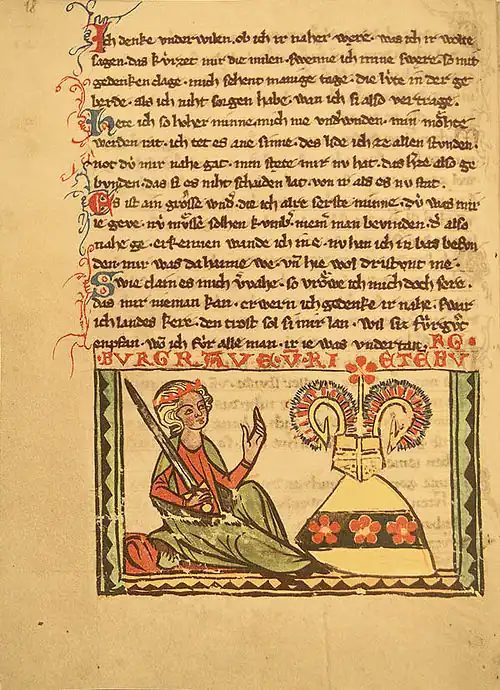 18
Ich denke vnder wilen. ob ich ir naher were. was ich ir wolte
sagen. das kúrzet mir die milen. swenne ich mine swere. so mit
gedenken clage. mich sehent manige tage. die lúte in der ge
berde. als ich niht sorgen habe. wan ich si also vertrage.
Hete ich so hoher minne. mich nie vnderwnden. min moͤhte
werden rat. ich tet es ane sinne. des lide ich ze allen stunden.
not dv́ mir nahe gat. min stete mir nv hat. das h͛ze also ge
bvnden. das si es niht schaiden lat. von ir als es nv stat.
Es ist ain grosse wnd͛. die ich alre serste minne. dv́ was mir
ie geve. nv muͤsse solhen kvmb͛. niem͛ man bevinden. d͛ also
nahe ge. erkennen wande ich in e. nv han ich in bas befvn
den. mir was da haime we. vn̄ hie wol dristvnt me.
Swie clain es mich v͛vahe. so vroͤwe ich mich doch sere.
das mir nieman kan. erwern ich gedenke ir nahe. swar
ich landes kere. den trost sol si mir lan. wil sis fúr guͦt
enpfan. ich fúr alle man. ir ie was vndertan.
RG.
BVRGRAVE V̄ RIETEBV